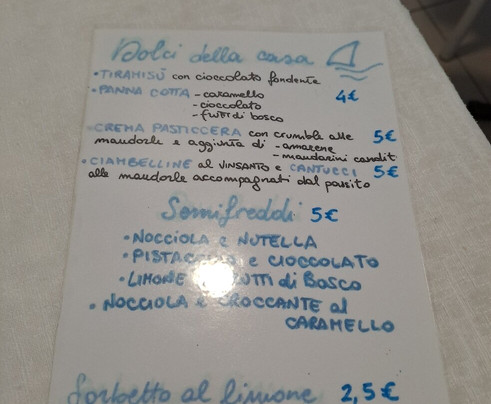 Dolci della casa
• TIRAMISÙ con cioccolato fondente
• PANNA COTTA - caramello 4€
- cioccolato
- frutti di bosco
• CREMA PASTICCERA con crumble alle 5€
mandorle e aggiunta di - amarene
- mandarini candit
• CIAMBELLINE al VINSANTO e CANTUCCI 5€
alle mandorle accompagnati dal passito
Semifreddi 5€
• NOCCIOLA e NUTELLA
• PISTACCHIO e CIOCCOLATO
• LIMONE FRUTTI di BOSCO
• NOCCIOLA e CROCCANTE al
CARAMELLO
Sorbetto al limone 2,5€